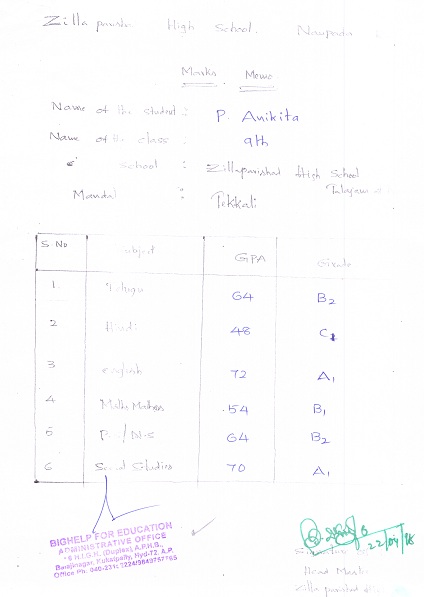 Zilla parishad High School. Naupada
Marks Memo
Name of the student : P. Anikita
Name of the class : 9th
" School : Zillaparishad High School
Mandal : Tekkali
S.No Subject GPA Grade
1. Telugu 64 B2
2 Hindi 48 C1
3 english 72 A1
4 Maths 54 B1
5 P.S/N.S 64 B2
6 Social Studies 70 A1
BIGHELP FOR EDUCATION
ADMINISTRATIVE OFFICE
(Duplex), A.P.H.B.,
Balajinagar, Kukatpally, Hyd-72, A.P.
Office Ph.
22/04/16
Head Master
Zilla parishad